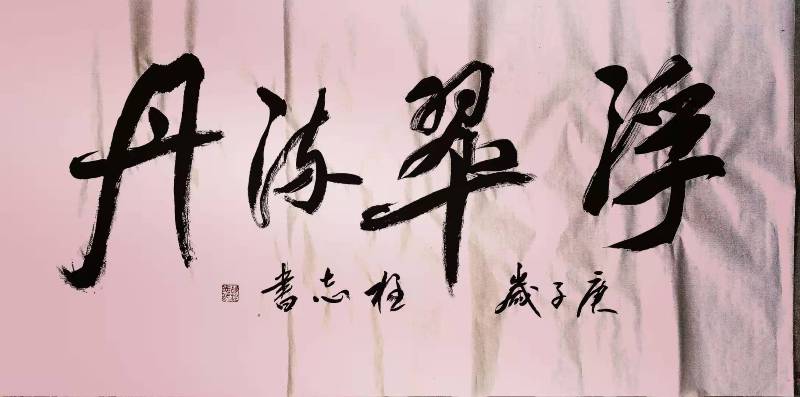 浮翠流丹
庚子歲 桂志書